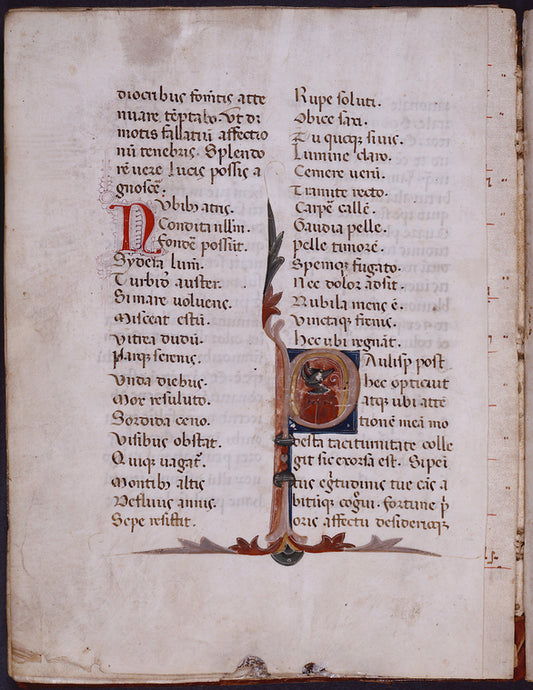 diocribus fom̄tis atte
nuare. tēptabo. Vt di
motis fallatiū affectio
nū tenebris. Splendo
rē uere lucis possis a
gnoscē.
Nubib; atris.
Condita nllm̄.
Fondē possūt.
Sydera lum̄.
Turbid auster.
Si mare voluens.
Misceat estū.
Vitrea dudū.
Parq; serenis.
Vnda diebus.
Mox resoluto.
Sordida ceno.
Visibus obstat.
Quiq; uagat̄.
Montib; altis
Defluus amnis.
Sepe resistit.
Rupe soluti.
Obice saxi.
Tu quoq; si uis.
Lumine claro.
Cernere ueni.
Tramite recto.
Carpe callē.
Gaudia pelle.
pelle timorē.
Spemq; fugato.
Nec dolor adsit.
Nubila mens ē.
Vinctaq; frenis.
Hec ubi regnāt.
Paulisp post
hec opticuit
atq; ubi attē
tionē meā mo
desta taciturnitate colle
git sic exorsa est. Si peī
tus eḡtudinis tue cās a
bitūq; cogui. fortune p̄
oris affectu desiderioq;